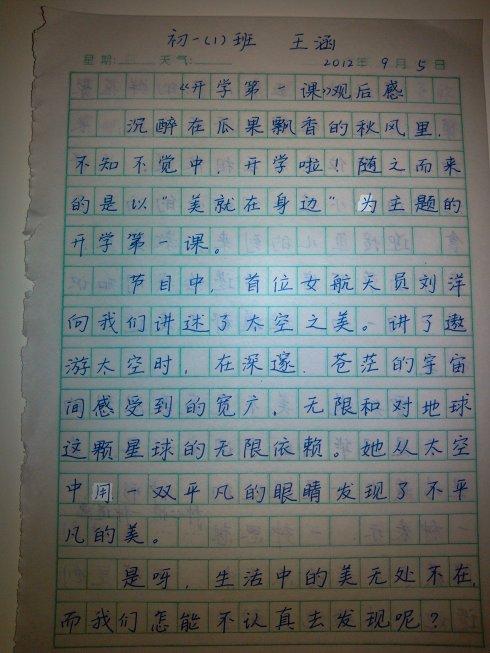 初一(1)班 王涵
星期: 天气: 2012年9月5日
《开学第一课》观后感
沉醉在瓜果飘香的秋风里,
不知不觉中,开学啦!随之而来
的是以"美就在身边"为主题的
开学第一课。
节目中,首位女航天员刘洋
向我们讲述了太空之美。讲了遨
游太空时,在深邃、苍茫的宇宙
间感受到的宽广、无限和对地球
这颗星球的无限依赖。她从太空
中用一双平凡的眼睛发现了不平
凡的美。
是呀,生活中的美无处不在,
而我们怎能不认真去发现呢?